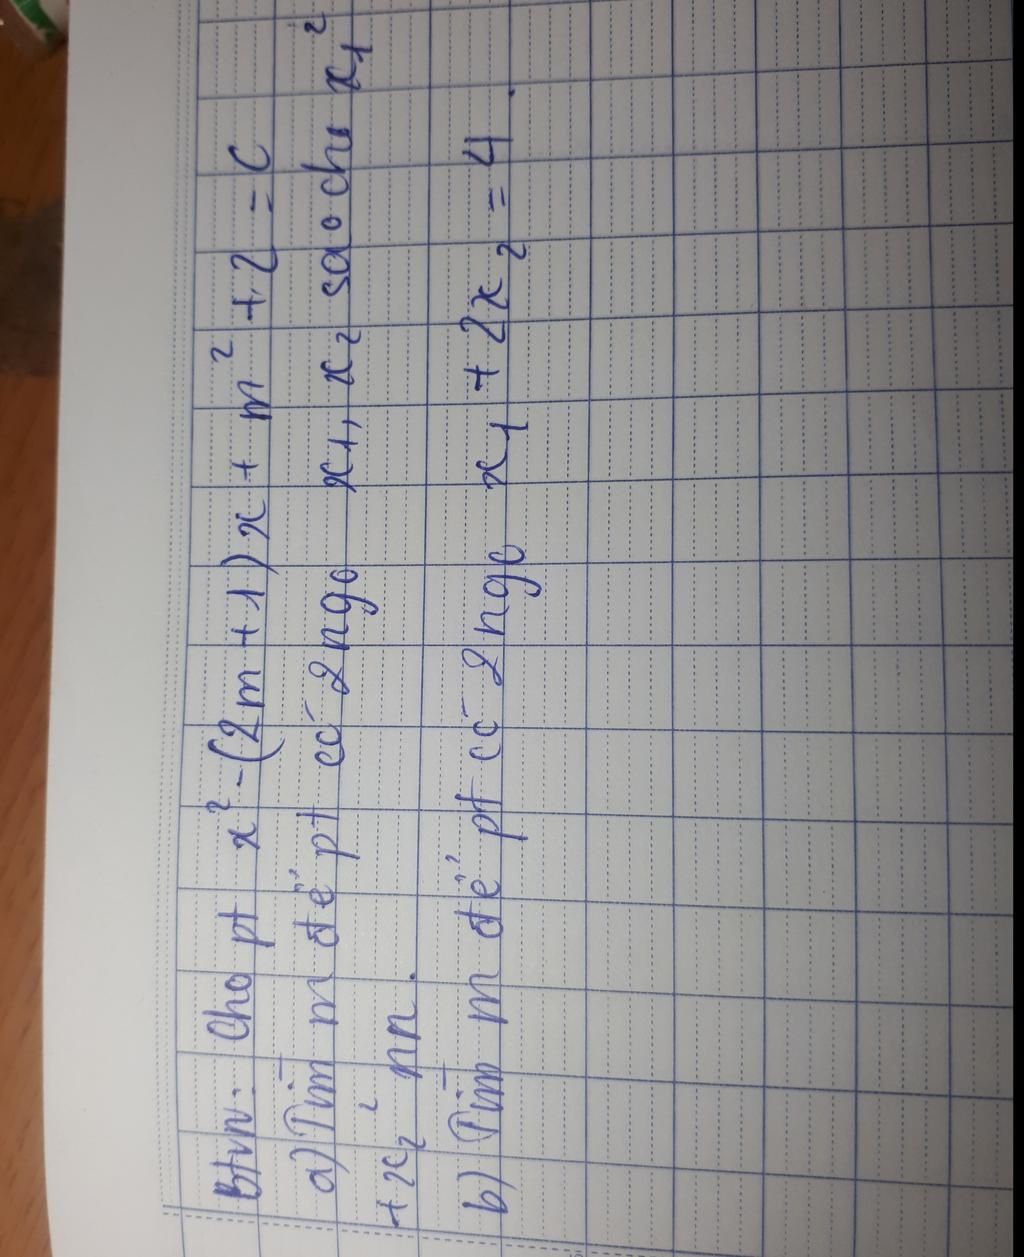 Btvn: Cho pt x² - (2m + 1)x + m² + 2 = 0
a) Tìm m để pt có 2 ngo x₁, x₂ sao cho x₁²
+ x₂² nn.
b) Tìm m để pt có 2 ngo x₁ + 2x₂ = 4.